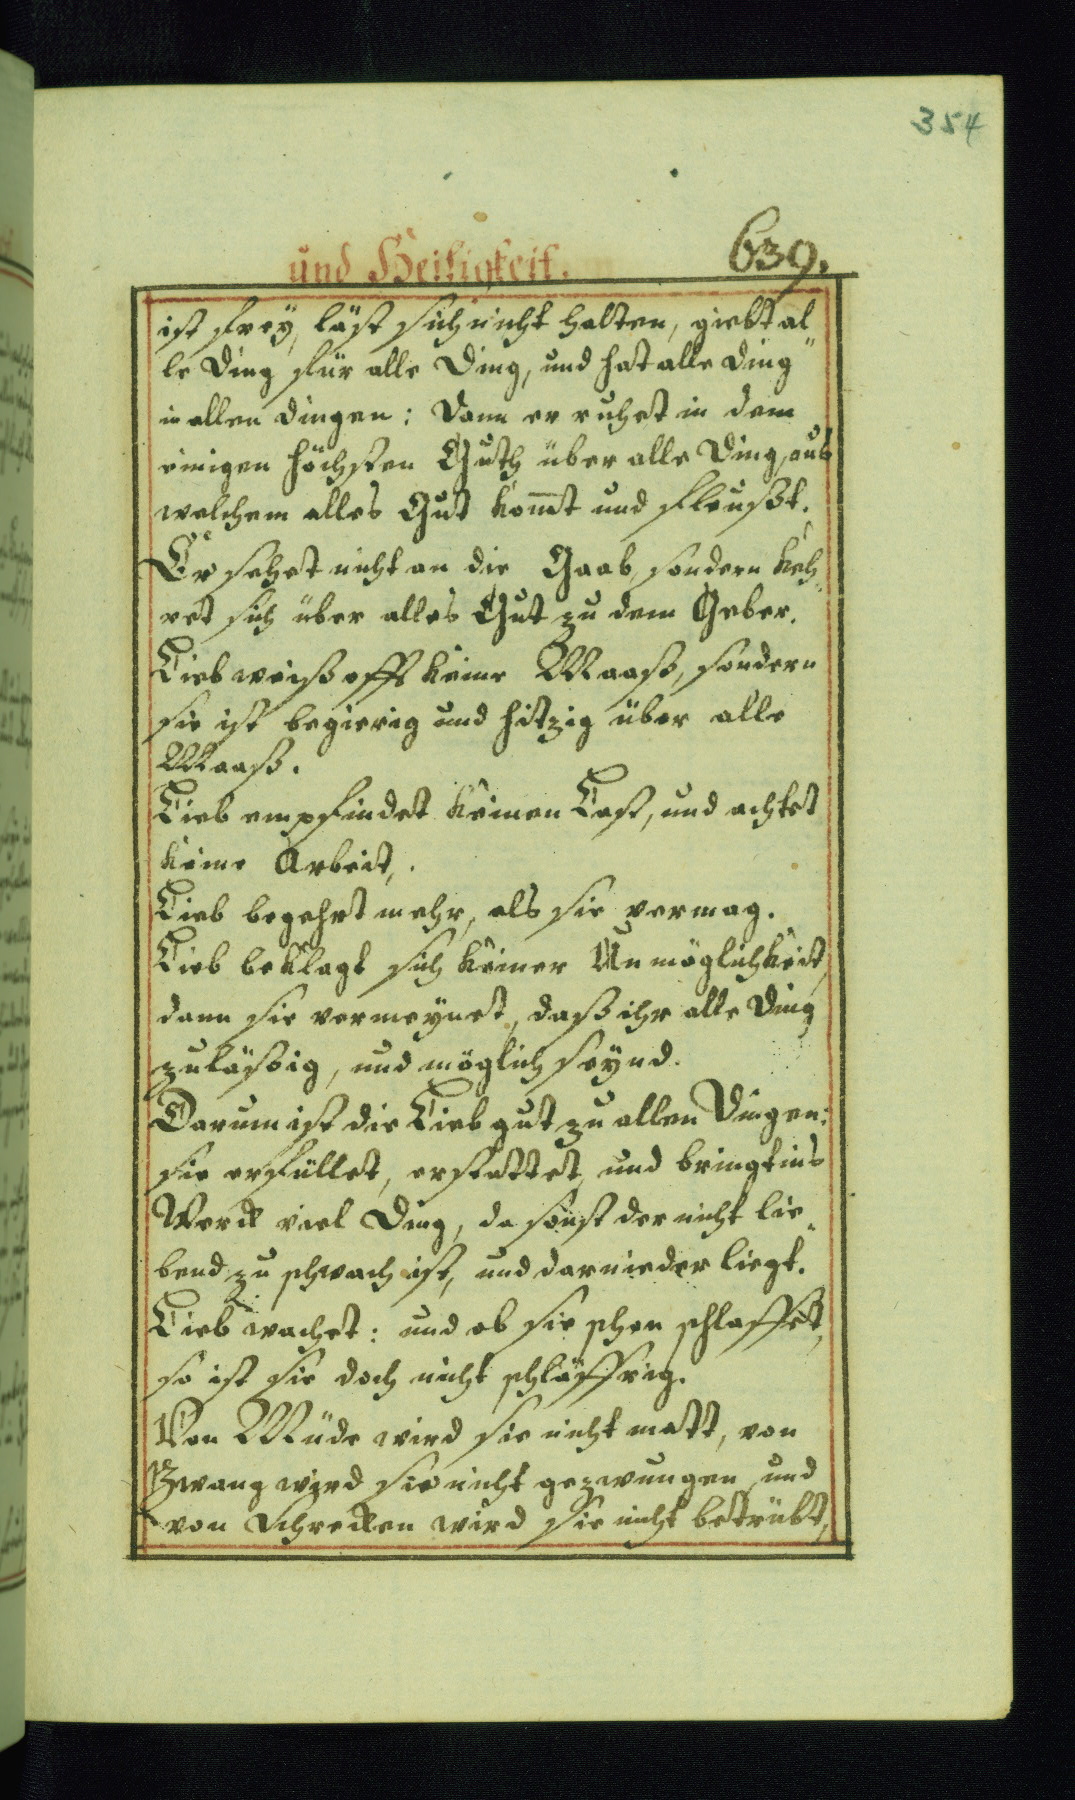 354
und Heiligkeit. 639.
ist frey, läst sich nicht halten, giebt al
le Ding für alle Ding, und hat alle Ding
in allen dingen: Dann er ruhet in dem
einigen höchsten Guth über alle Ding, aus
welchem alles Gut kom̅t und fleußt.
Er sehet nicht an die Gaab, sondern keh„
ret sich über alles Gut zu dem Geber.
Lieb weiß offt keine Maaß, sondern
sie ist begierig und hitzig über alle
Maaß.
Lieb empfindet keinen Last, und achtet
keine Arbeit,.
Lieb begehrt mehr, als sie vermag.
Lieb beklagt sich keiner Unmöglichkeit,
dann sie vermeynet, daß ihr alle Ding
zuläßig, und möglich seynd.
Darum ist die Lieb gut zu allen Dingen:
sie erfüllet, erstattet, und bringt ins
Werck viel Ding, da sonst der nicht lie„
bend zu schwach ist, und darnieder liegt.
Lieb wachet: und ob sie schon schlaffet,
so ist sie doch nicht schläffrig.
Von Müde wird sie nicht matt, von
Zwang wird sie nicht gezwungen, und
von Schrecken wird sie nicht betrübt,